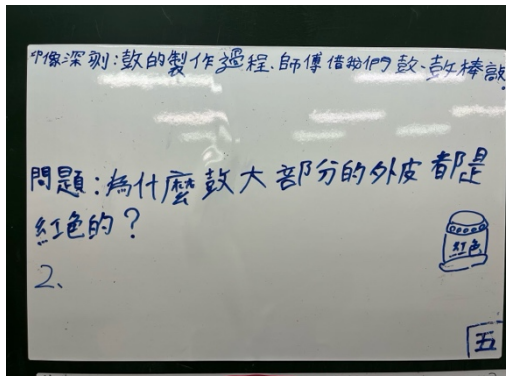 印像深刻:鼓的製作過程.師傅借我們鼓、鼓棒敲
問題:為什麼鼓大部分的外皮都是
紅色的?
紅色
2、
五